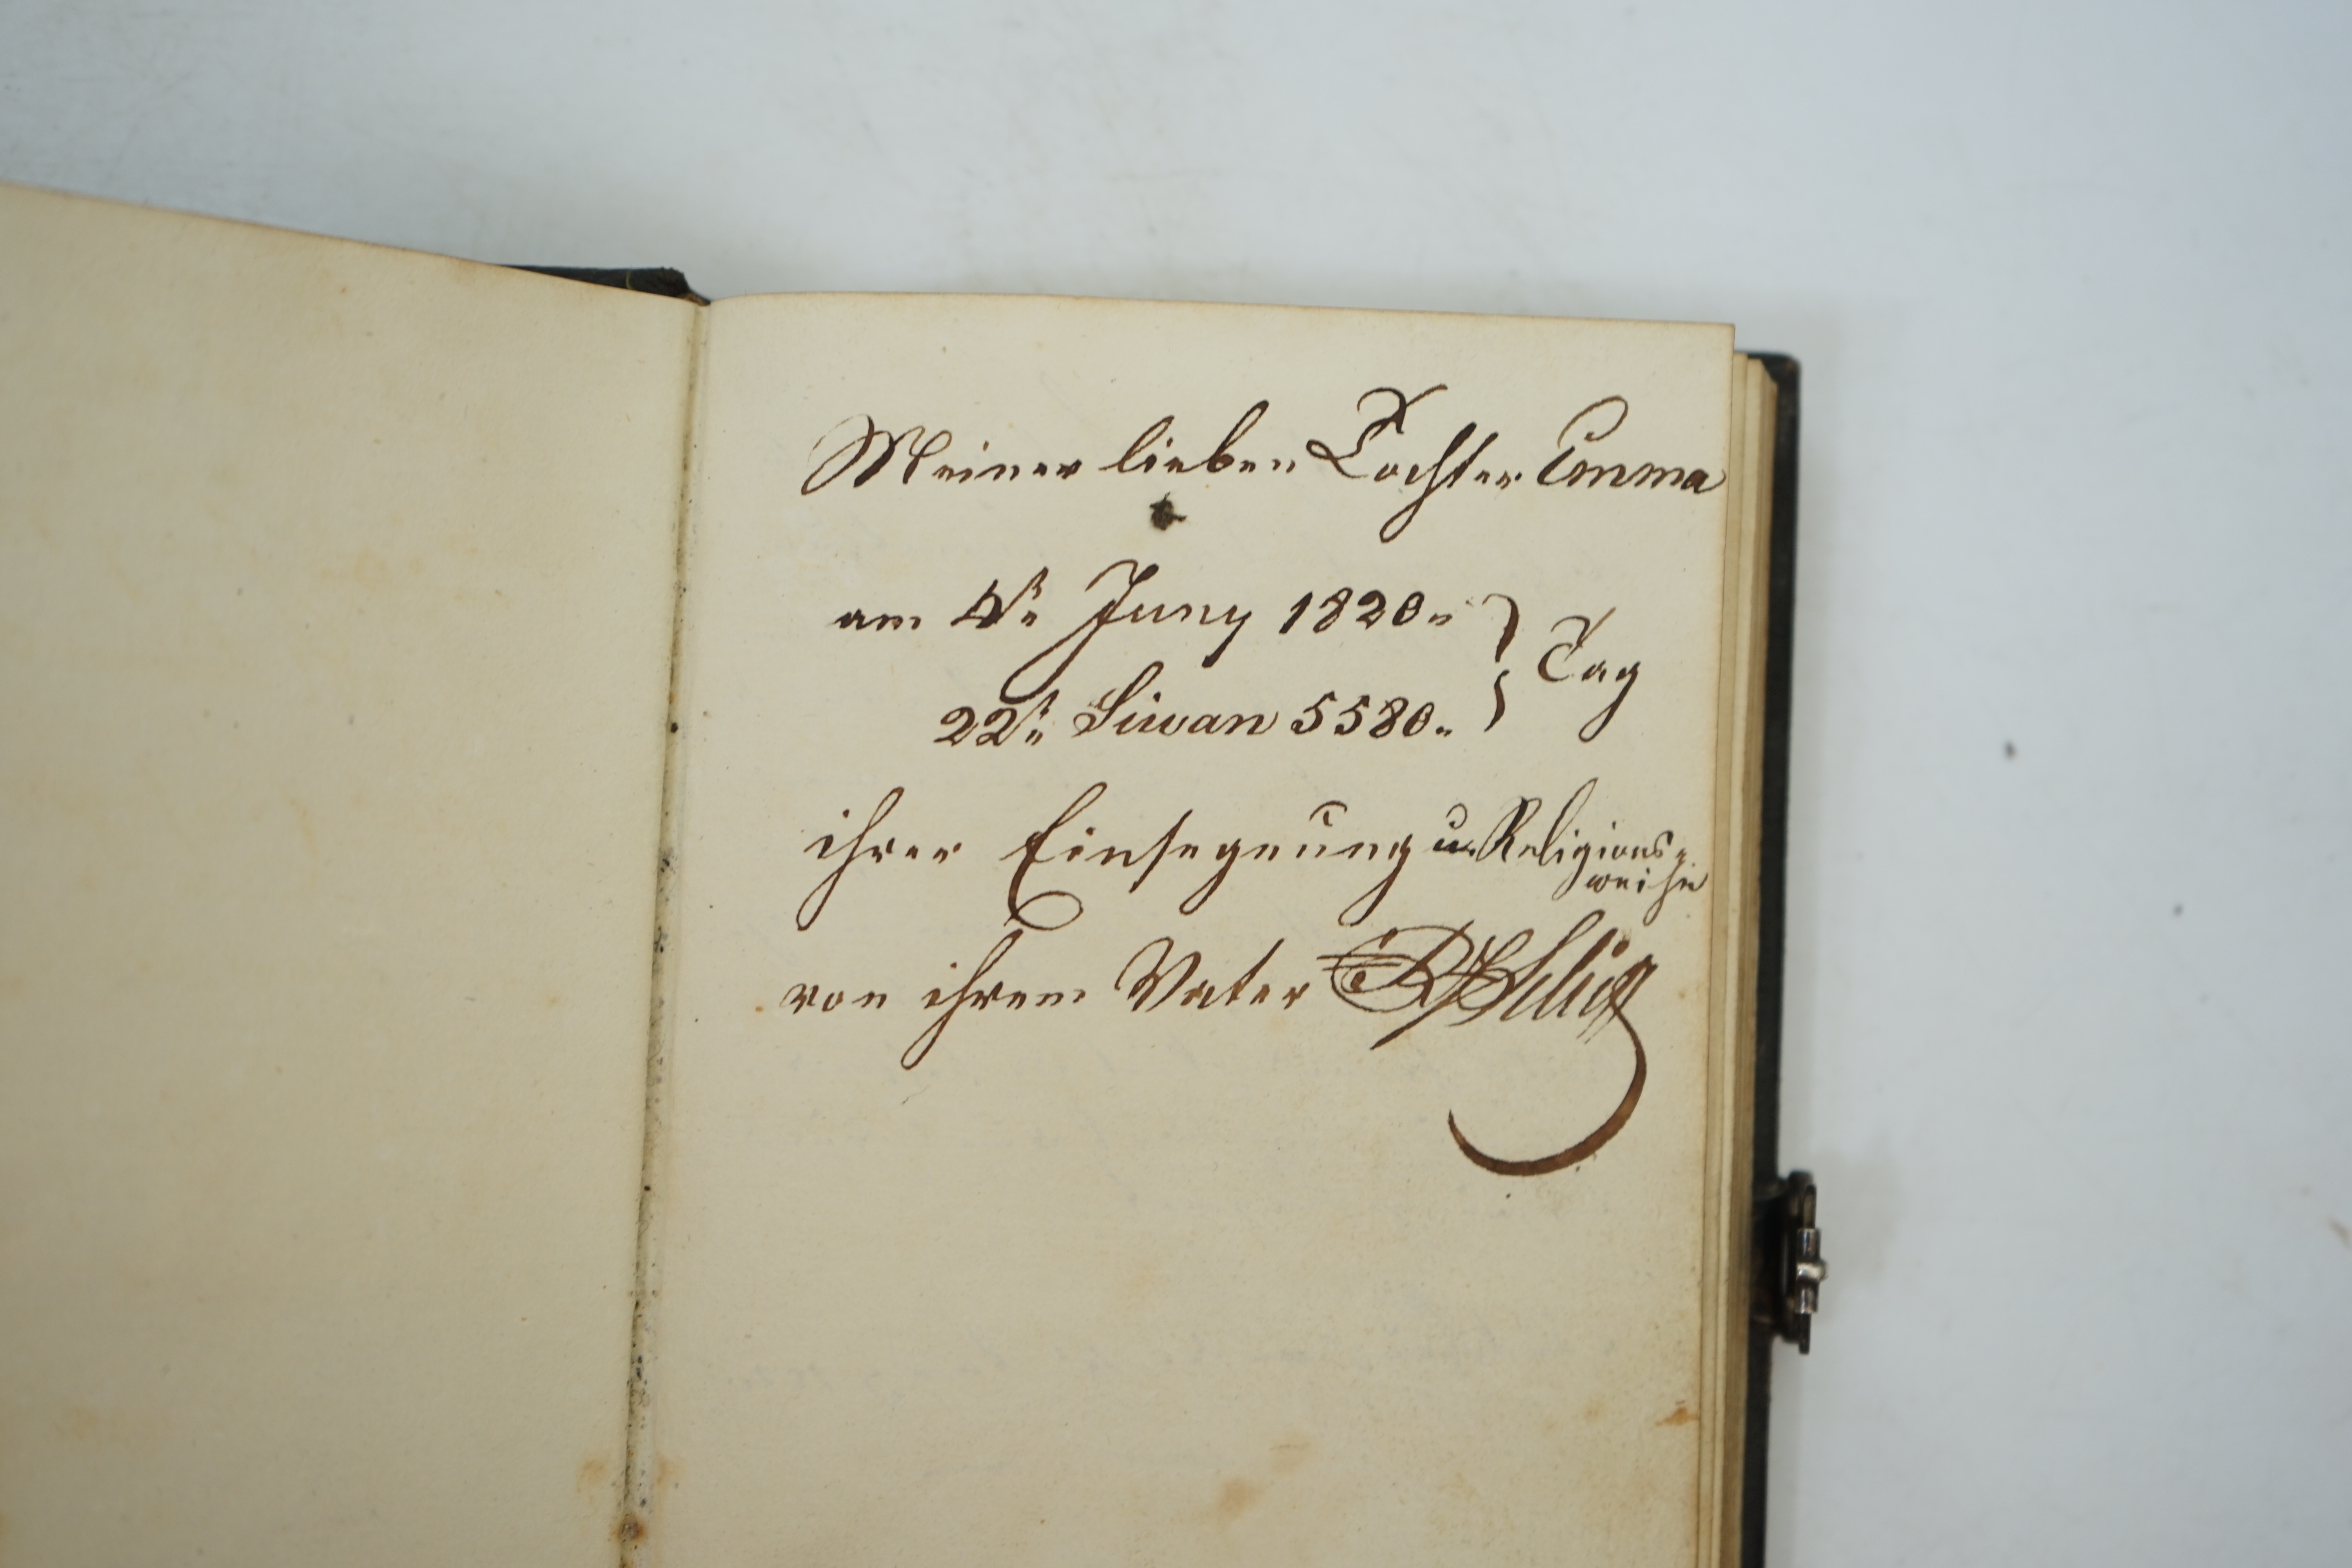 Meiner lieben Tochter Emma
am 4n Juny 1820.
22n Siwan 5580.
Tag
ihrer Einsegnung u. Religions=
weihe
von ihrem Vater